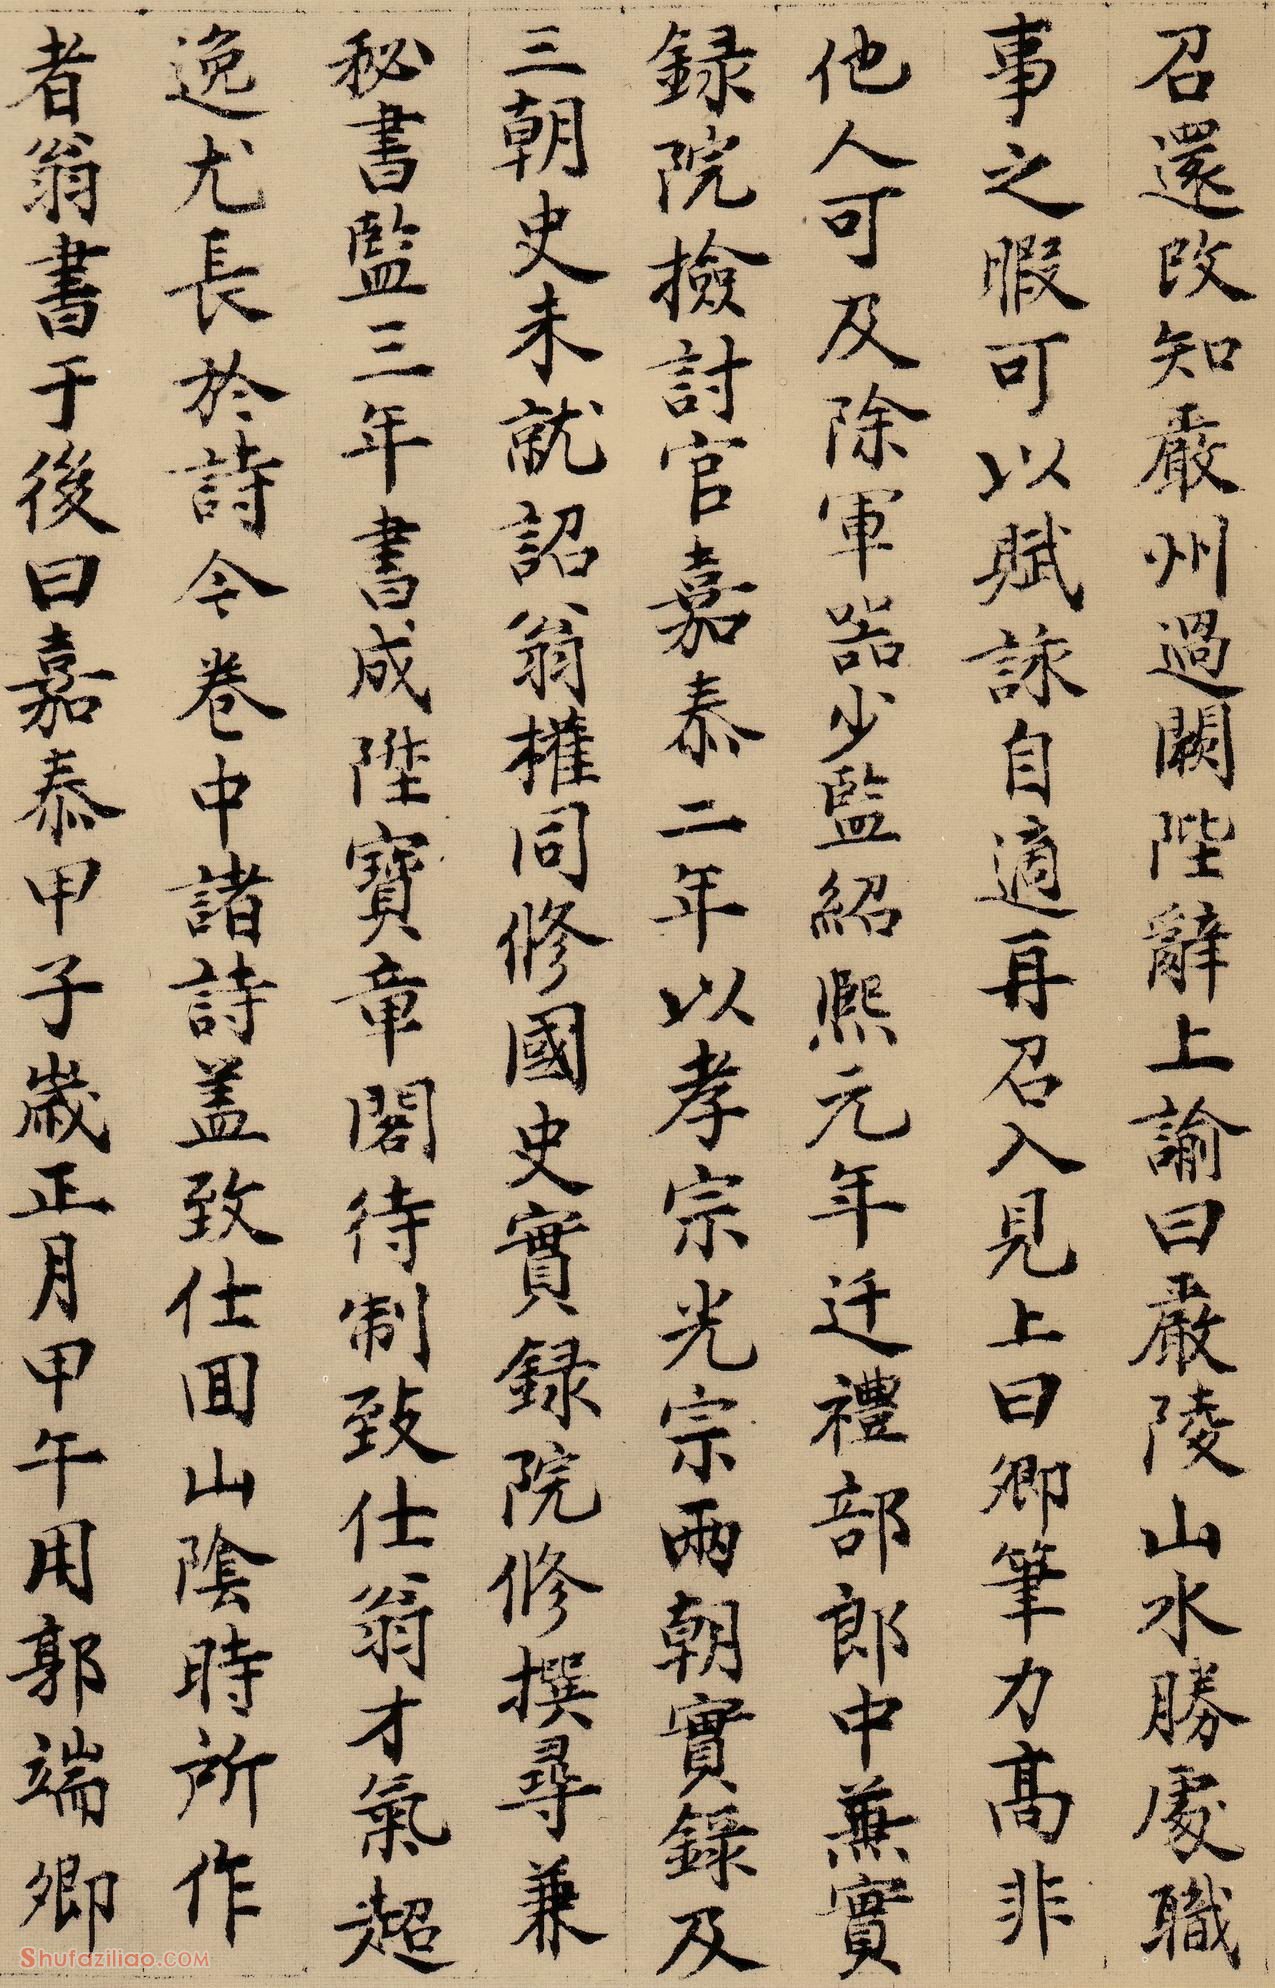 召還改知嚴州過闕陛辭上諭曰嚴陵山水勝處職
事之暇可以賦詠自適再召入見上曰卿筆力高非
他人可及除軍器少監紹熙元年迁禮部郎中兼實
録院撿討官嘉泰二年以孝宗光宗兩朝實録及
三朝史未就詔翁權同修國史實録院修撰尋兼
秘書監三年書成陞寶章閣待制致仕翁才氣超
逸尤長於詩今卷中諸詩盖致仕囬山陰時所作
者翁書于後曰嘉泰甲子歲正月甲午用郭端卿
Shufaziliao.COM